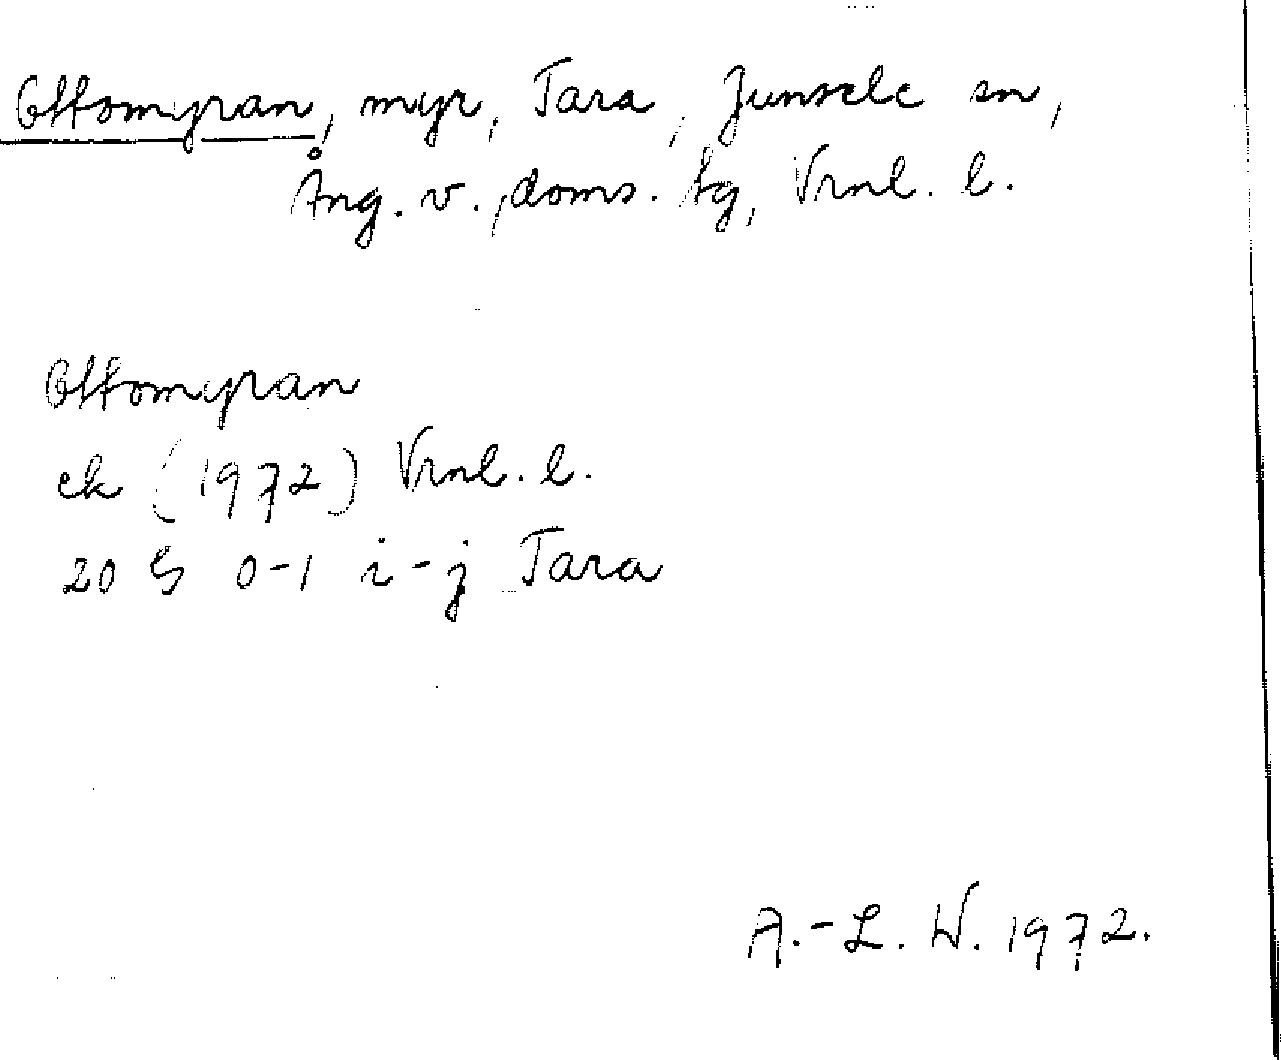 Ottomyran, myr, Tara, Junsele sn,
Ång. v. doms. tg, Vrnl. l.
Ottomyran
ek (1972) Vrnl. l.
20 G 0-1 i-j Tara
A.-L. W. 1972.